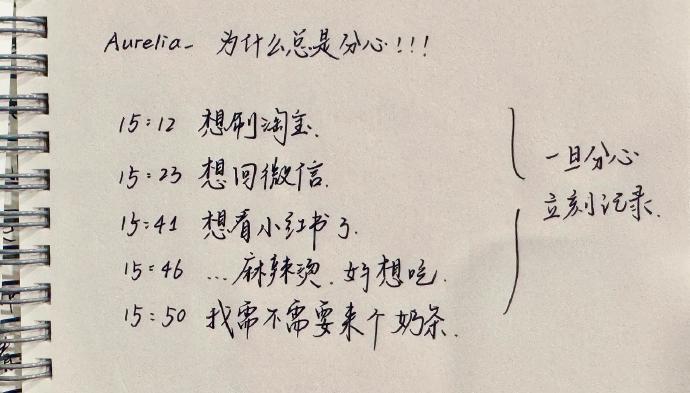 Aurelia- 为什么总是分心!!!
15:12 想刷淘宝.
15:23 想回微信.
15:41 想看小红书了.
15:46 ...麻辣烫.好想吃.
15:50 我需不需要来个奶茶.
一旦分心
立刻记录.